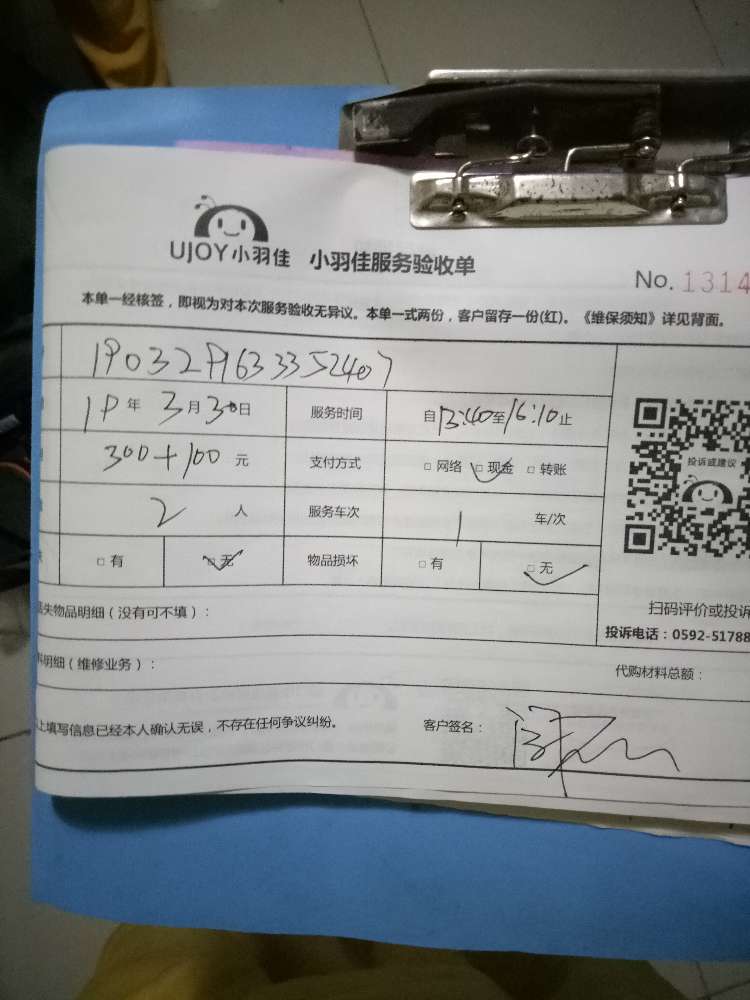 UJOY小羽佳 小羽佳服务验收单
No. 1314
本单一经核签，即视为对本次服务验收无异议。本单一式两份，客户留存一份(红)。《维保须知》详见背面。
1903291633352407
19年3月30日 服务时间 自13:40至16:10止
300+100元 支付方式 □网络 □现金 □转账
投诉或建议
2人 服务车次 1车/次
□有 □无 物品损坏 □有 □无
失物品明细（没有可不填）：
扫码评价或投诉
投诉电话：0592-51788
料明细（维修业务）： 代购材料总额：
上填写信息已经本人确认无误，不存在任何争议纠纷。 客户签名：